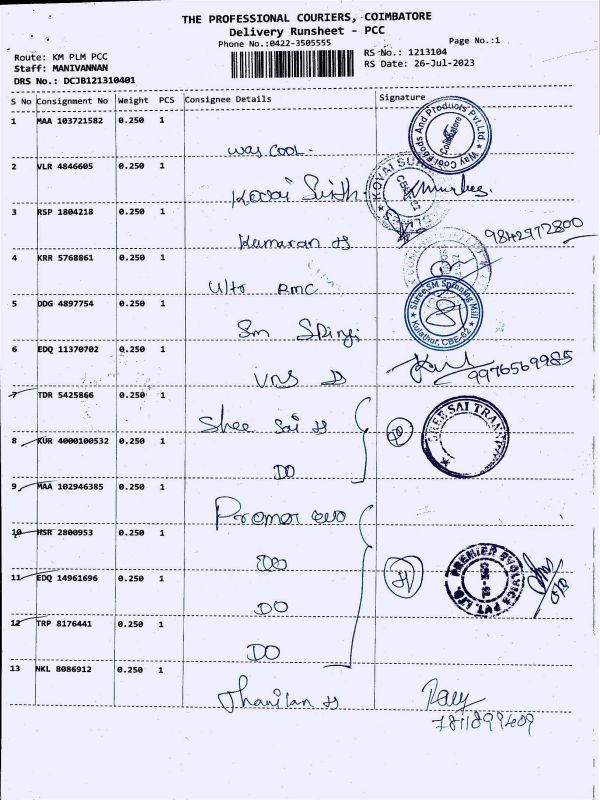 THE PROFESSIONAL COURIERS, COIMBATORE
Delivery Runsheet - PCC
Phone No.:0422-3505555
Page No.:1
Route: KM PLM PCC
Staff: MANIVANNAN
DRS No.: DCJB121310401
RS No.: 1213104
RS Date: 26-Jul-2023
S No Consignment No Weight PCS Consignee Details Signature
1 MAA 103721582 0.250 1
Way Cool Foods And Products Pvt.Ltd. Coimbatore
was cool.
2 VLR 4846605 0.250 1
Kovai
3 RSP 1804218 0.250 1
Kumaran
9842972800
4 KRR 5768861 0.250 1
RMC
5 DDG 4897754 0.250 1
Shree SM Spinning Mill
Kulathur, CBE-62
Sm
6 EDQ 11370702 0.250 1
VNS
9976569985
7 TDR 5425866 0.250 1
Shee Sai
SREE SAI TRANS
8 KUR 4000100532 0.250 1
DO
9 MAA 102946385 0.250 1
10 HSR 2800953 0.250 1
DO
PREMIER EVOLVICS PVT. LTD.
CBE - 62.
11 EDQ 14961696 0.250 1
DO
12 TRP 8176441 0.250 1
DO
13 NKL 8086912 0.250 1
7811899409